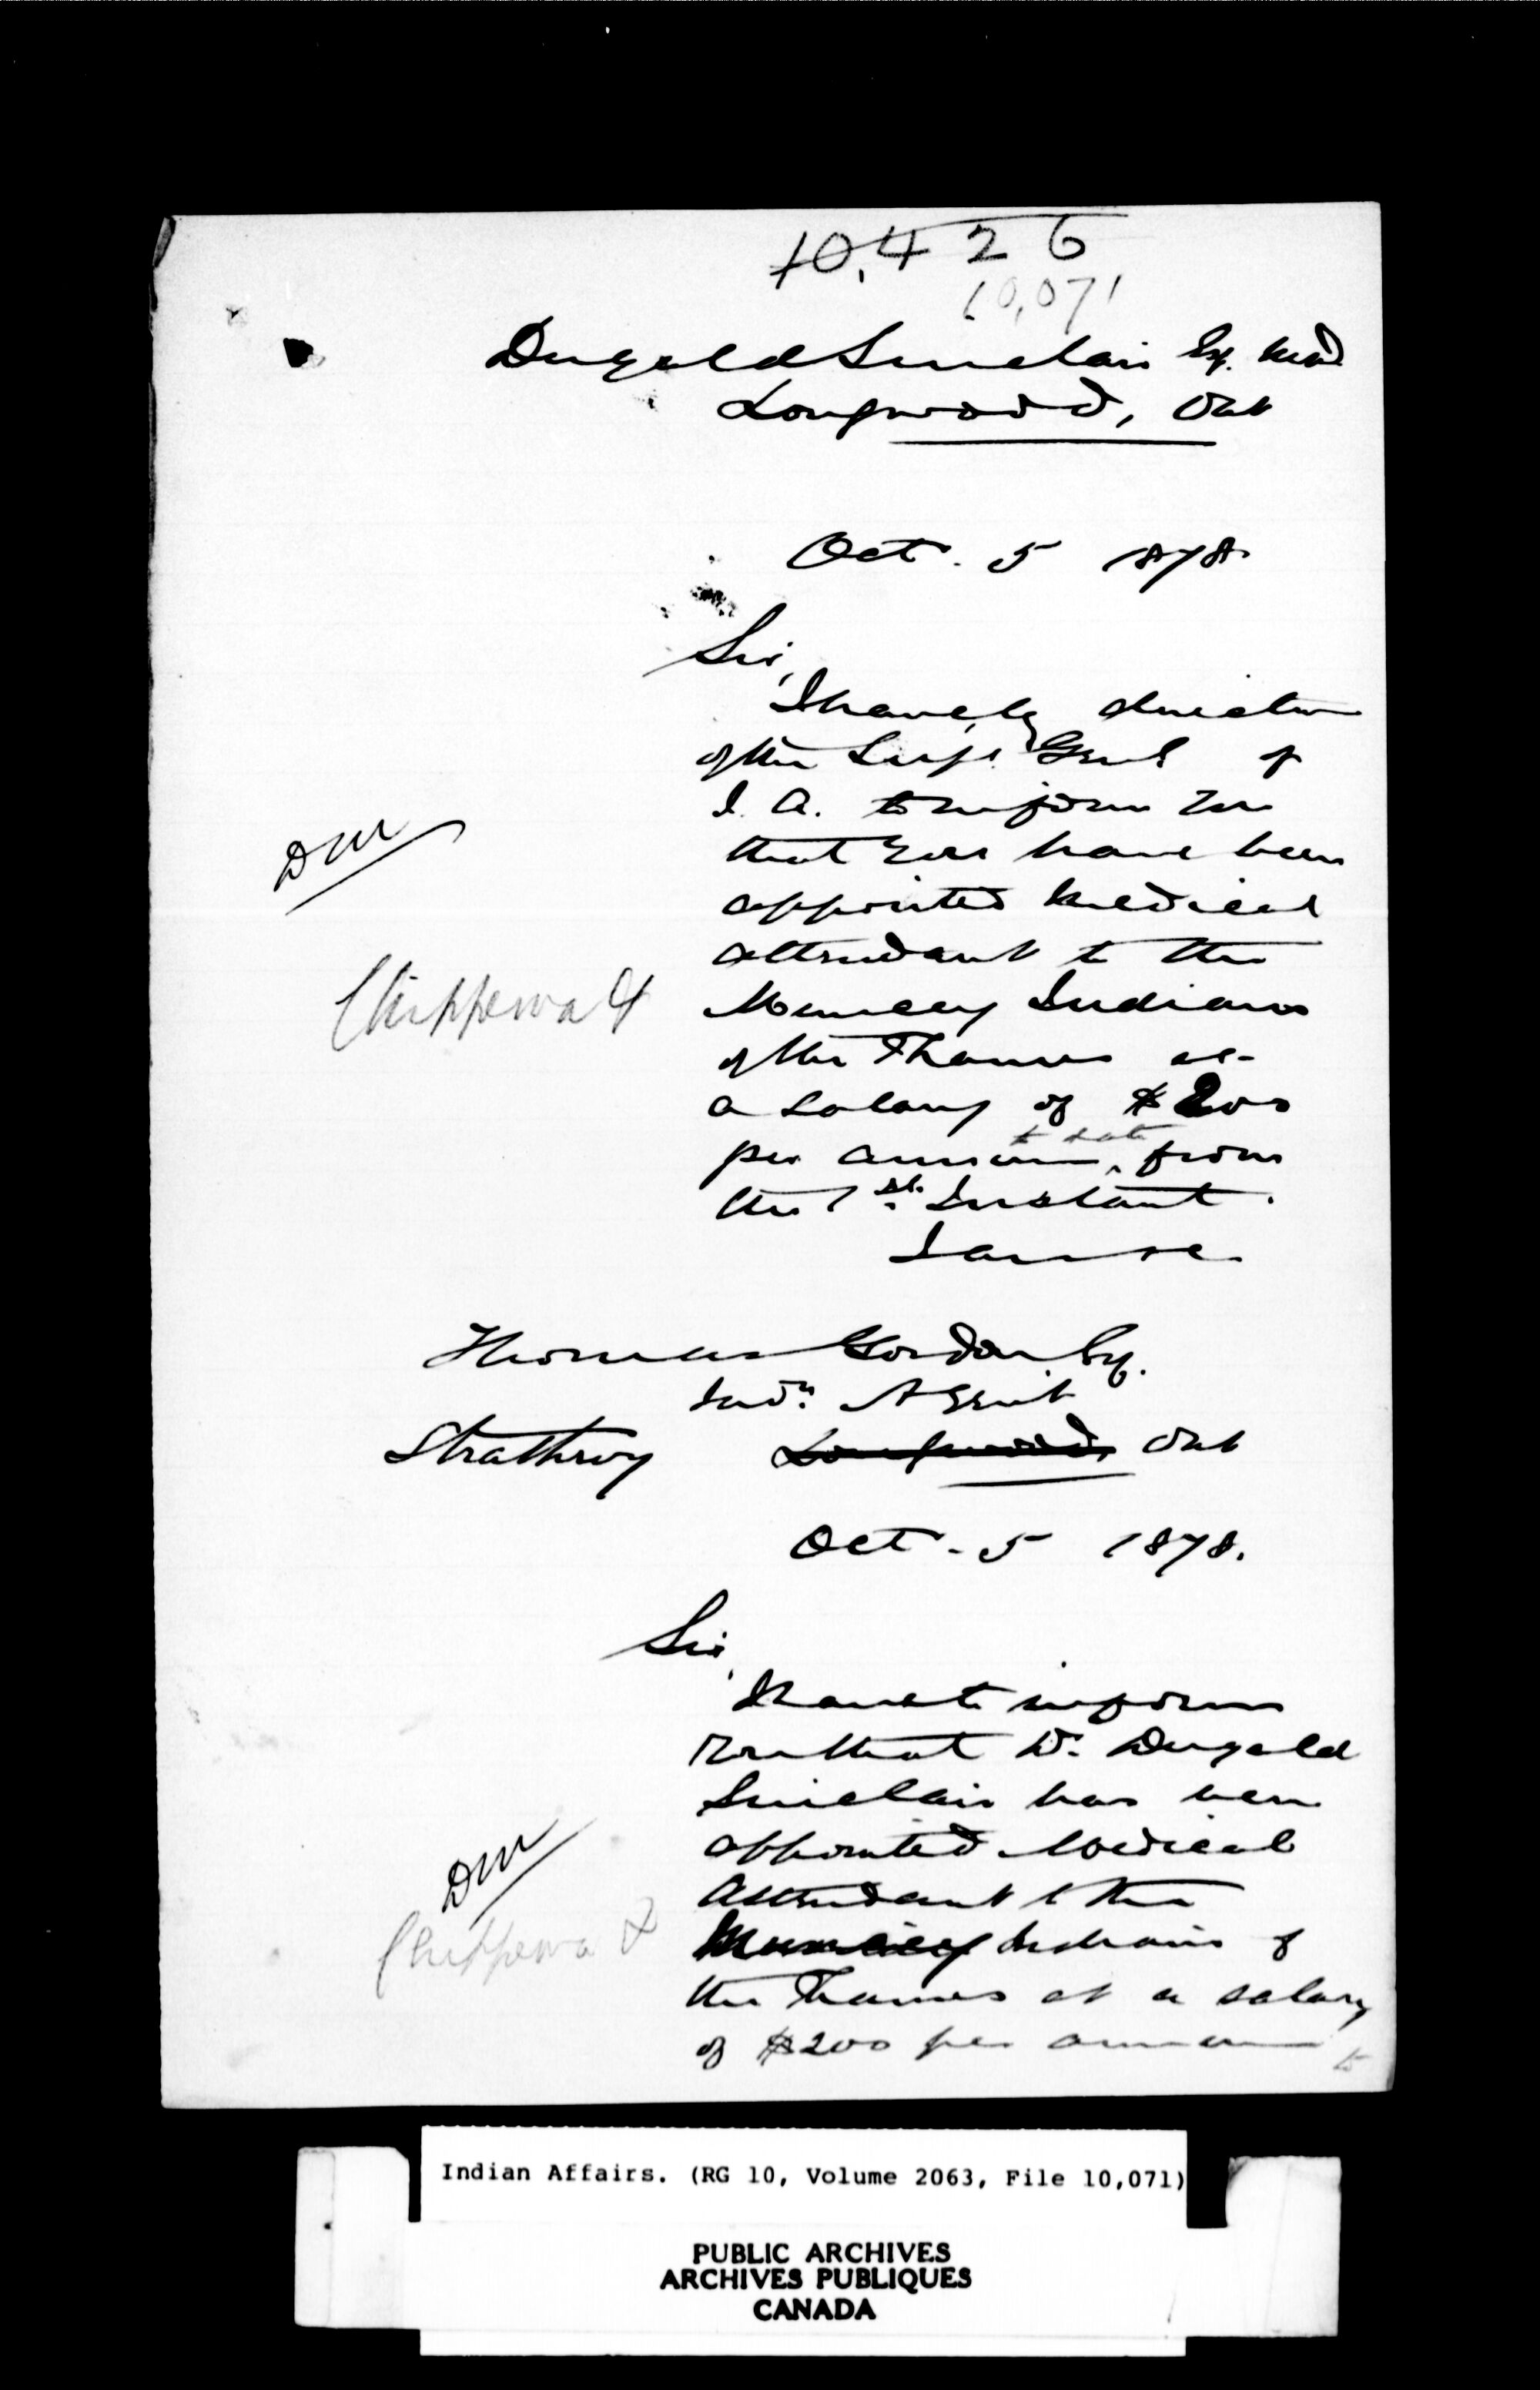 10,426
10,071
Dugald Sinclair Esq. M.D.
Longwood, Ont
Oct. 5 1878.
Sir,
I have, by direction
of the Supt. Genl of
I. A. to inform you
that you have been
appointed Medical
attendant to the
Chippewa & Muncey Indians
of the Thames at
a salary of $200
per annum, to date from
the 1st. Instant.
I am &c.
DM
Thomas Gordon Esq.
Indn. Agent
Strathroy Longwood, Ont
Oct. 5 1878.
Sir,
I have to inform
you that Dr. Dugald
Sinclair has been
appointed Medical
Attendant to the
Chippewa & Muncey Indians of
the Thames at a salary
of $200 per annum to
DM
Indian Affairs. (RG 10, Volume 2063, File 10,071)
PUBLIC ARCHIVES
ARCHIVES PUBLIQUES
CANADA